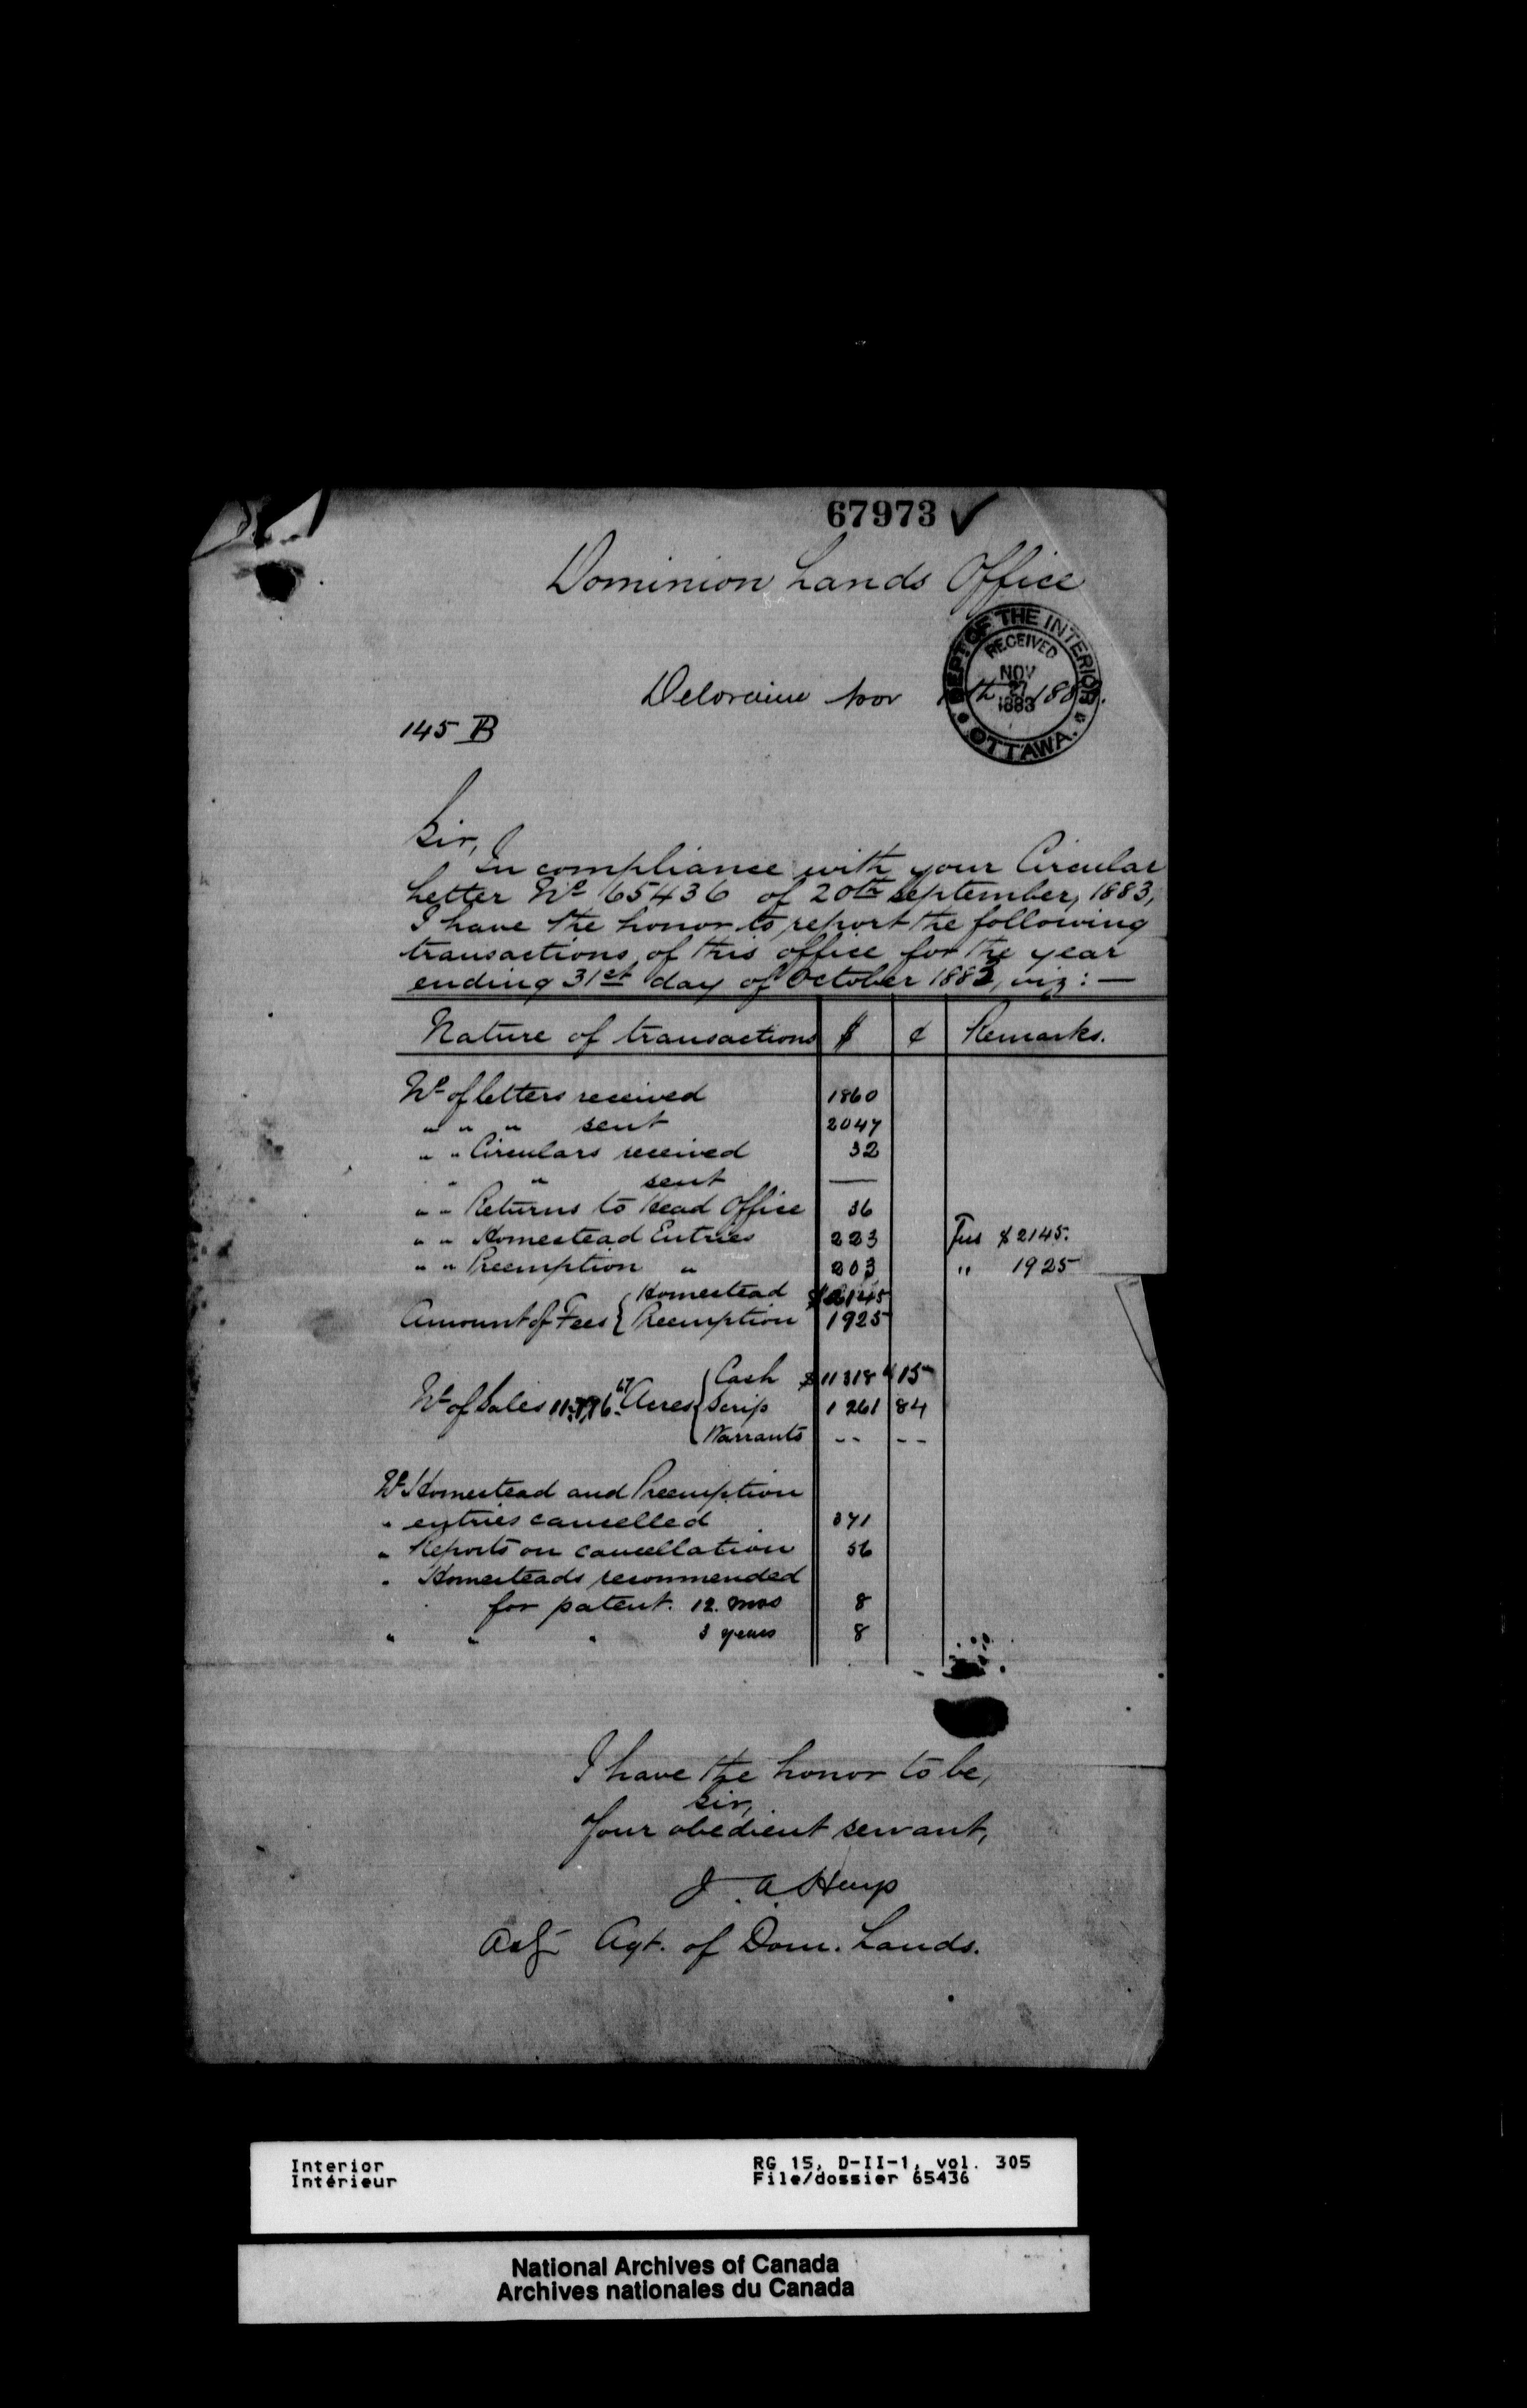 67973 ✓
Dominion Lands Office
DEPT OF THE INTERIOR
RECEIVED
NOV
27
1883
OTTAWA.
Deloraine Nov th 188
145 B
Sir,
In compliance with your Circular
Letter No 65436 of 20th September, 1883,
I have the honor to report the following
transactions of this office for the year
ending 31st day of October 1883, viz: —
Nature of transactions $ ¢ Remarks.
No of letters received 1860
" " " sent 2047
" " Circulars received 32
" " sent —
" " Returns to Head Office 36
" " Homestead Entries 223 Fees $2145.
" " Preemption " 203 " 1925
Amount of Fees { Homestead $2145
Preemption 1925
Cash $11318 15
No of Sales 67 Acres { Scrip 1261 84
Warrants -- --
No Homestead and Preemption
" entries cancelled 371
" Reports on cancellation 56
" Homesteads recommended
for patent. 12. mos 8
" " " 3 years 8
I have the honor to be,
Sir,
Your obedient servant,
J. A.
Actg Agt. of Dom. Lands.
Interior
Intérieur
RG 15, D-II-1, vol. 305
File/dossier 65436
National Archives of Canada
Archives nationales du Canada